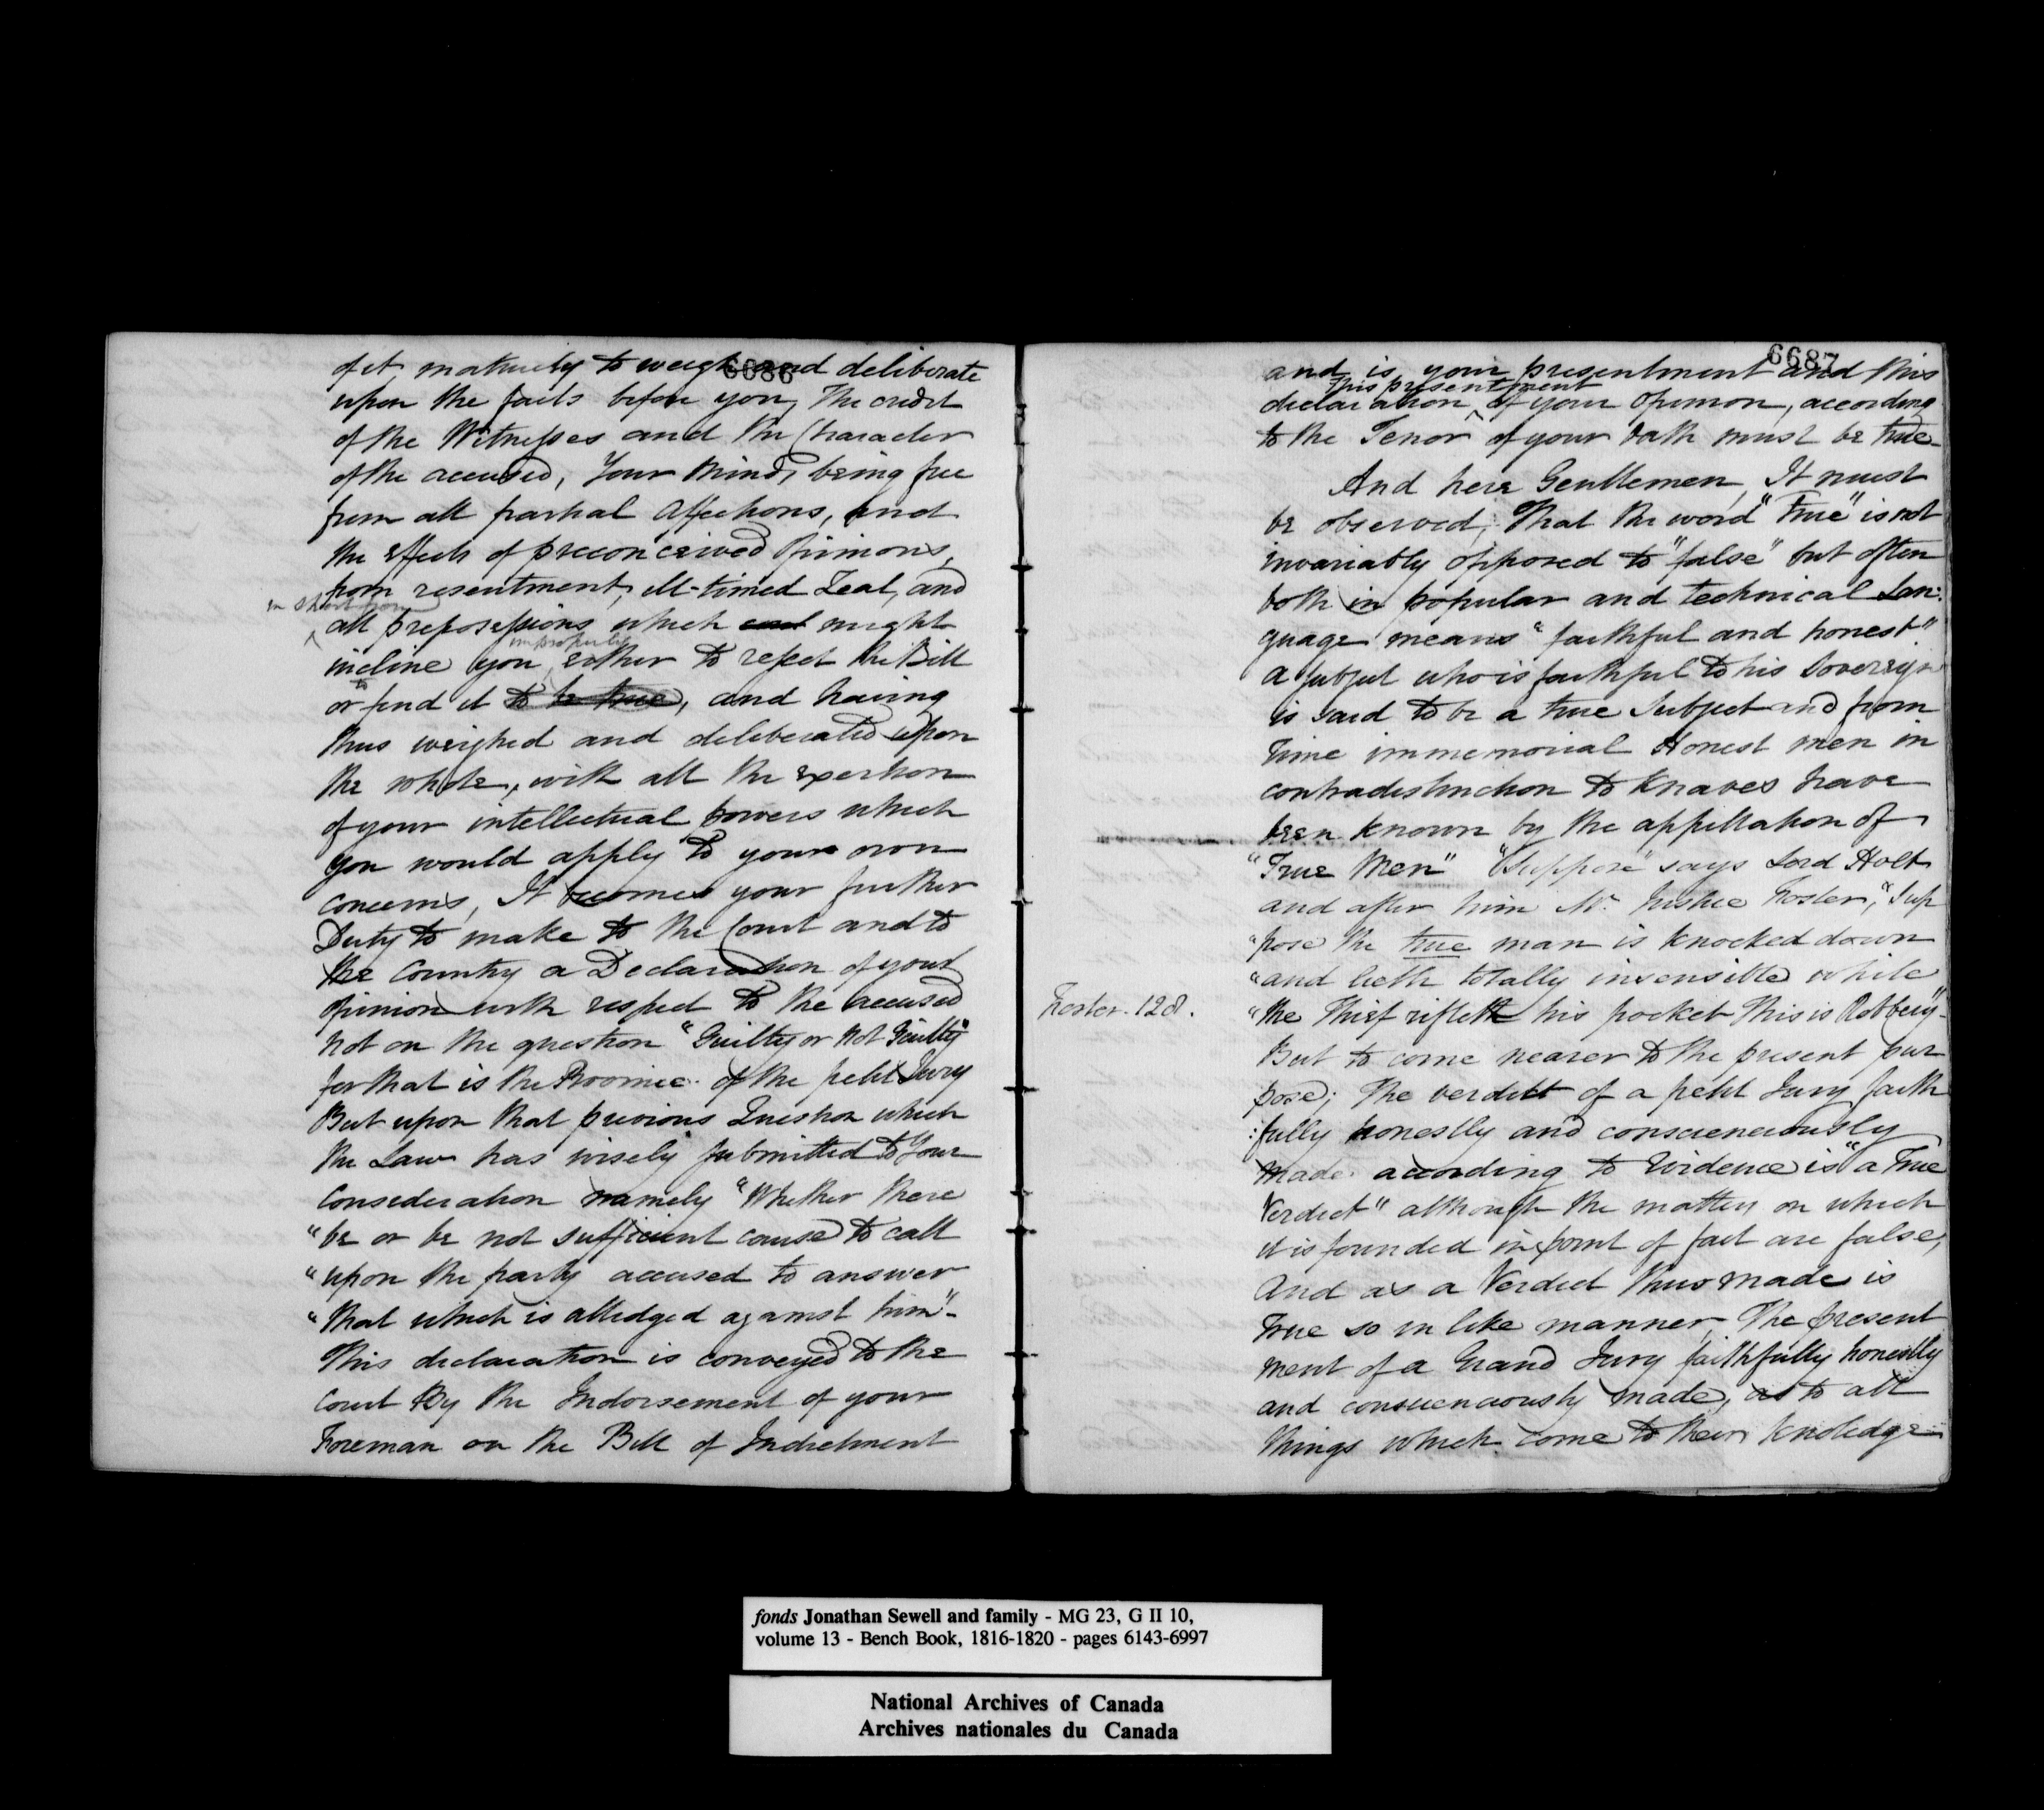 6686
of it maturely to weigh and deliberate
upon the facts before you, The credit
of the Witnesses and the Character
of the accused, Your Minds being free
from all partial Affections, and
the effects of preconceived Opinions,
from resentment, ill-timed Zeal, and
in short from
all prepossessions which might
improperly
incline you either to reject the Bill
to
or find it to be true, and having
thus weighed and deliberated upon
the whole, with all the exertion
of your intellectual powers which
you would apply to your own
concerns, It becomes your further
Duty to make to the Court and to
the Country a Declaration of your
opinion with respect to the accused
not on the question "Guilty or Not Guilty"
for that is the Province of the petit Jury
But upon that previous Question which
the Law has wisely submitted to Your
Consideration namely "Whether there
"be or be not sufficient cause to call
"upon the party accused to answer
"that which is alledged against him"-
This declaration is conveyed to the
Court By the Indorsement of your
Foreman on the Bill of Indictment
6687
and is your presentment and this
this presentment
declaration of your Opinion, according
to the Tenor of your Oath must be true
And here Gentlemen, It must
be observed, That the word "True" is not
invariably opposed to "false" but often
both in popular and technical Lan:
guage means "faithful and honest"
a subject who is faithful to his Sovereign
is said to be a true Subject and from
time immemorial Honest men in
contradistinction to Knaves have
been known by the appellation of
"True Men" "Suppose" says Lord Holt
and after him Mr. Justice Foster, "Sup
"pose the true man is knocked down
"and lieth totally insensible while
Foster. 128.
"the Thief rifleth his pocket This is Robbery"-
But to come nearer to the present pur
pose; The verdict of a petit Jury faith
:fully honestly and conscienciously
made according to Evidence is "a True
Verdict" although the matters on which
it is founded in point of fact are false,
And as a Verdict thus made is
True so in like manner, The present
ment of a Grand Jury faithfully honestly
and conscienciously made, as to all
things which come to their knoledge
fonds Jonathan Sewell and family - MG 23, G II 10,
volume 13 - Bench Book, 1816-1820 - pages 6143-6997
National Archives of Canada
Archives nationales du Canada